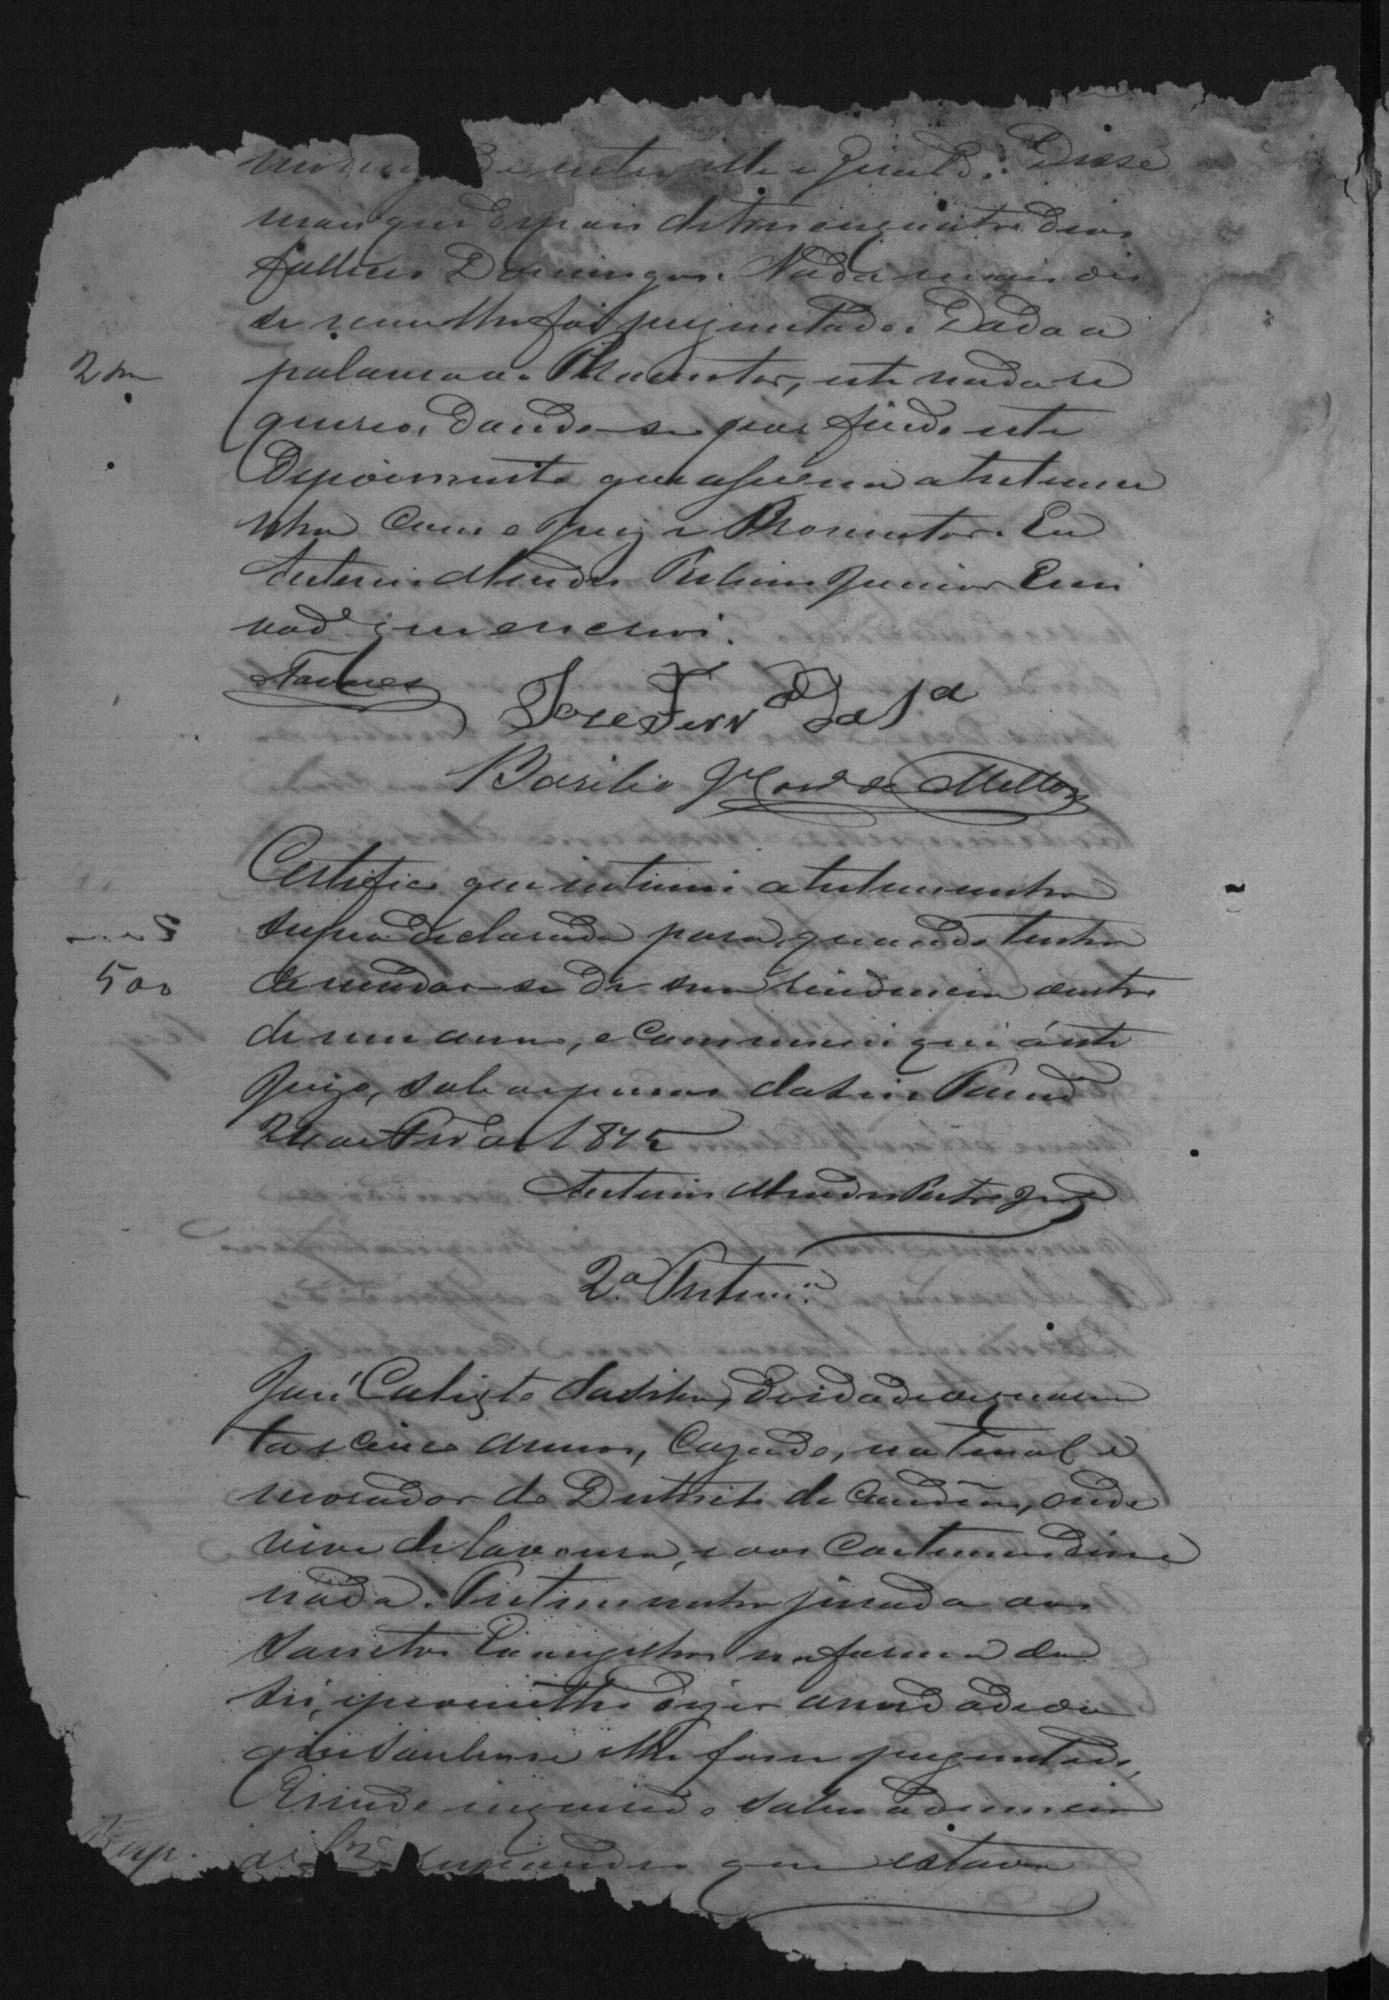 Disse
mais que depois de tres ou quatro dias
falleceu Domingos. Nada mais dis
se nem lhe foi perguntado. Dada a
2 $
palavra ao Promotor, este nada re
quereo, dando-se por findo este
Depoimento que assigna a testemu
nha com o Juiz e Promotor. Eu
Antonio Mendes Junior Escri
vad que escrevi.
Tavares
Jose Ferrª da Sª
Basilio de Mello
Certifico que intimei a testemunha
supra declarada para quando tenha
500
de mudar-se de sua residencia dentro
de um anno, o communique á este
Juizo, sob as penas da Lei.
de 1875
Antonio Mendes
2.ª Testem.ª
José Calixto da Silva, de idade de quaren
ta e cinco annos, Cazado, natural e
morador do Destricto de onde
vive de lavoura, e aos Costumes disse
nada. Testemunha jurada aos
Sanctos Evangelhos na forma da
Lei, prometteo dizer a verdade do
que soubesse e lhe fosse perguntado,
E sendo inquerido sobre a denuncia
Resp.
de respondeu que estava